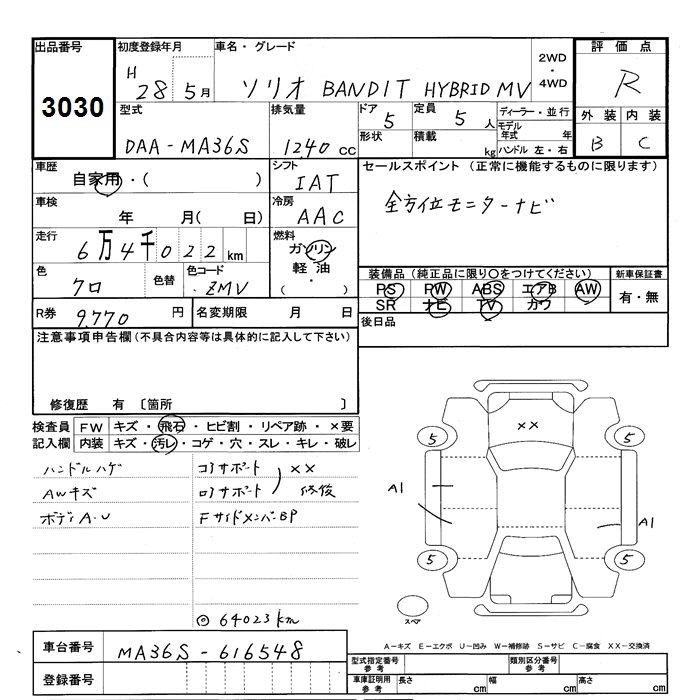 出品番号
3030
初度登録年月
H 28 5月
車名・グレード
ソリオ BANDIT HYBRID MV
2WD
・
4WD
評価点
R
外装 内装
B C
型式
DAA-MA36S
排気量
1240 cc
ドア 5
定員 5 人
形状
積載 kg
ディーラー・並行
モデル年式 年
ハンドル 左・右
車歴
自家用・( )
シフト
IAT
セールスポイント (正常に機能するものに限ります)
全方位モニターナビ
車検
年 月( 日)
冷房
AAC
走行
6万4千022 km
燃料
ガソリン
軽油
( ・ )
色
クロ
色替
色コード
ZMV
装備品(純正品に限り○をつけてください)
PS PW ABS エアB AW
SR ナビ TV カワ
新車保証書
有・無
R券 9,770 円
名変期限 月 日
後日品
注意事項申告欄(不具合内容等は具体的に記入して下さい)
修復歴 有 〔箇所 〕
検査員記入欄
FW キズ・飛石・ヒビ割・リペア跡・×要
内装 キズ・汚レ・コゲ・穴・スレ・キレ・破レ
ハンドルハゲ
AWキズ
ボディA.U
コアサポート ××
ロアサポート 修後
FサイドメンバーBP
◎ 64023km
××
5
5
A1
A1
5
5
スペア
A―キズ E―エクボ U―凹み W―補修跡 S―サビ C―腐食 XX―交換済
車台番号
MA36S-616548
登録番号
型式指定番号 参考
類別区分番号 参考
車庫証明用 参考
長さ cm
幅 cm
高さ cm